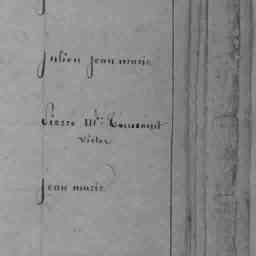 Julien Jean marie
Pierre Mie Toussaint
Victor
Jean marie